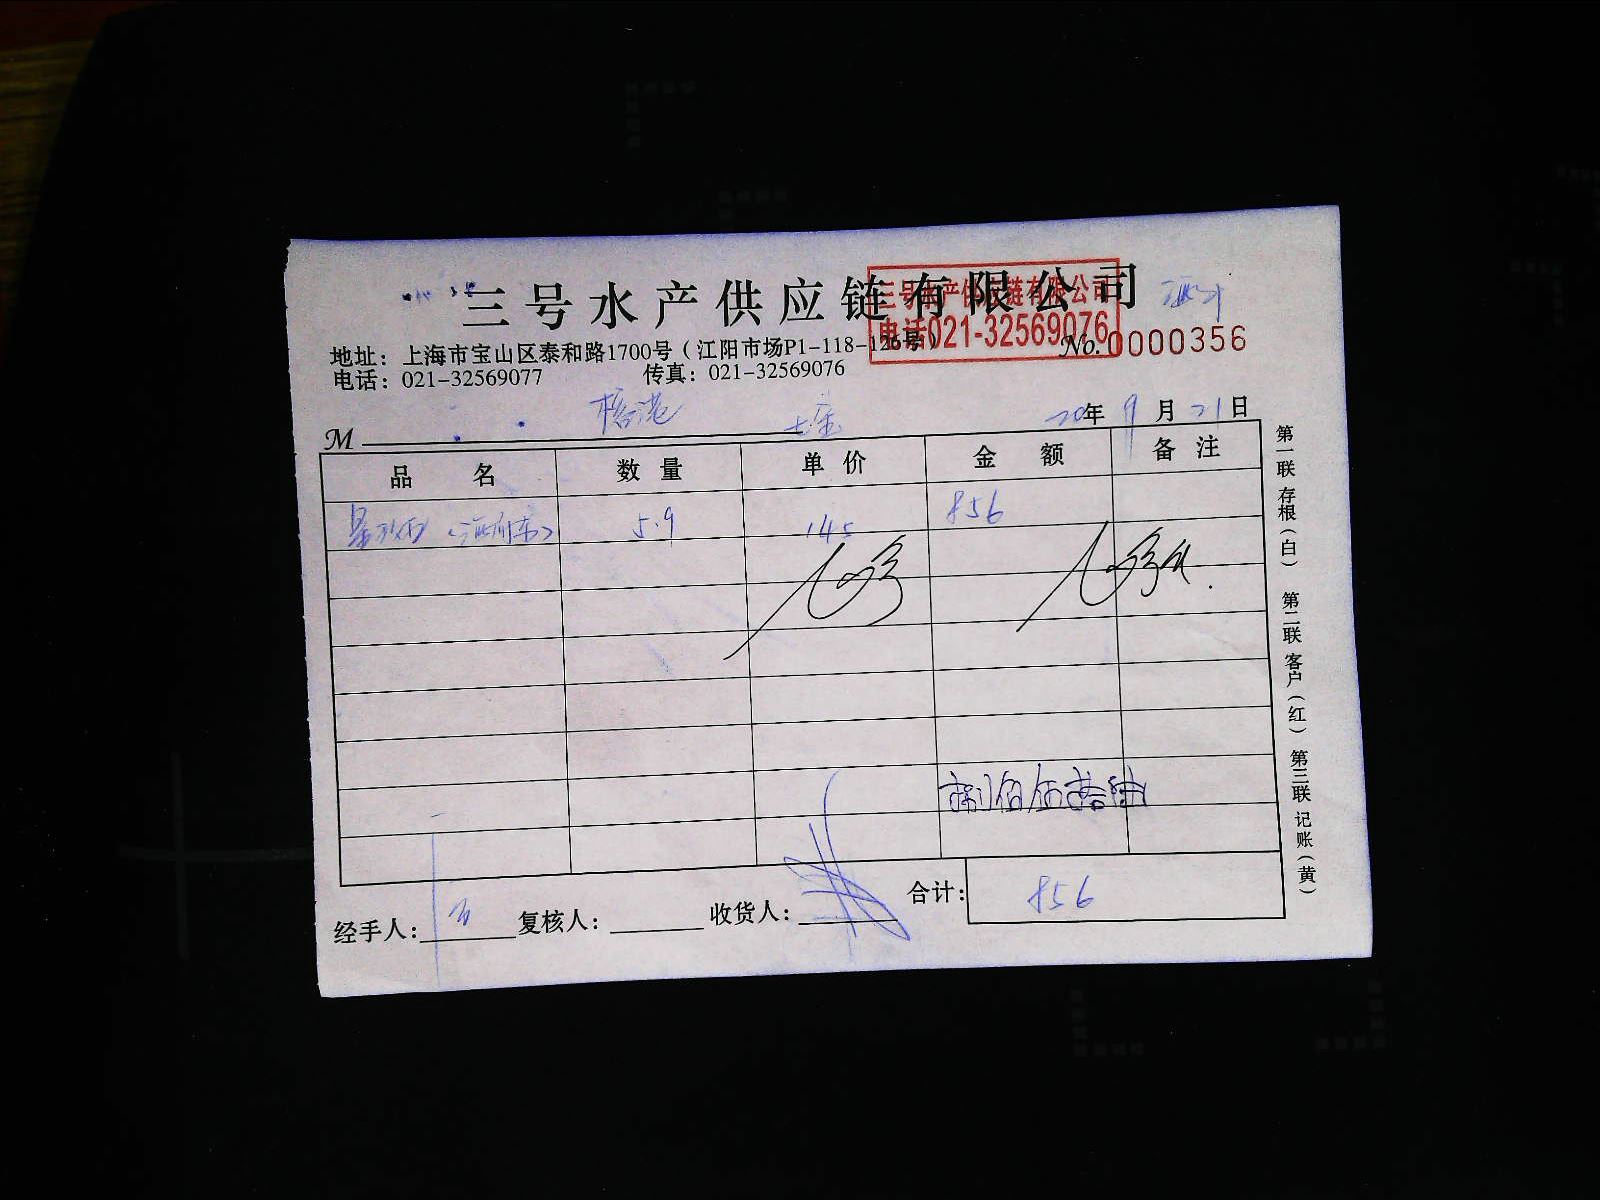 三号水产供应链有限公司
三号水产供应链有限公司
电话021-32569076
地址：上海市宝山区泰和路1700号（江阳市场P1-118-126号）
No.0000356
电话：021-32569077 传真：021-32569076
M 20年9月21日
品名 数量 单价 金额 备注
5.9 145 856
捌佰伍拾陆
经手人： 复核人： 收货人： 合计：856
第一联 存根（白） 第二联 客户（红） 第三联 记账（黄）